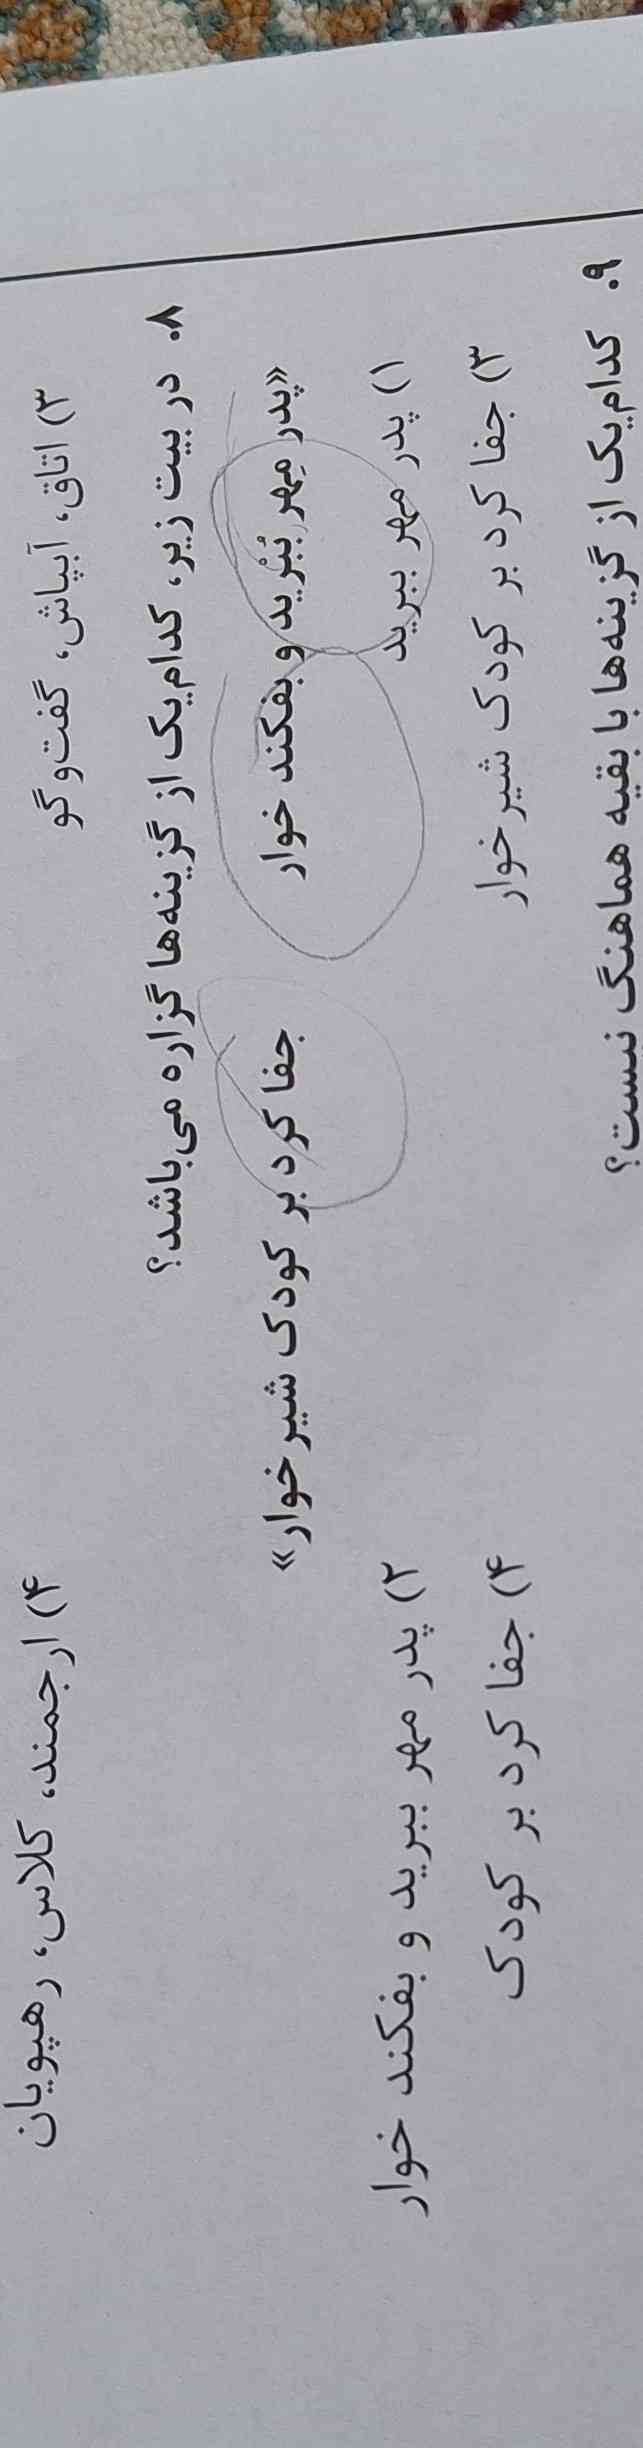 ۳) اتاق، آبپاش، گفت‌وگو
۴) ارجمند، کلاس، رهپویان
۸. در بیت زیر، کدام‌یک از گزینه‌ها گزاره می‌باشد؟
«پدر مِهر بُبْرید و بفکند خوار
جفا کرد بر کودک شیرخوار»
۱) پدر مهر ببرید
۲) پدر مهر ببرید و بفکند خوار
۳) جفا کرد بر کودک شیرخوار
۴) جفا کرد بر کودک
۹. کدام‌یک از گزینه‌ها با بقیه هماهنگ نیست؟